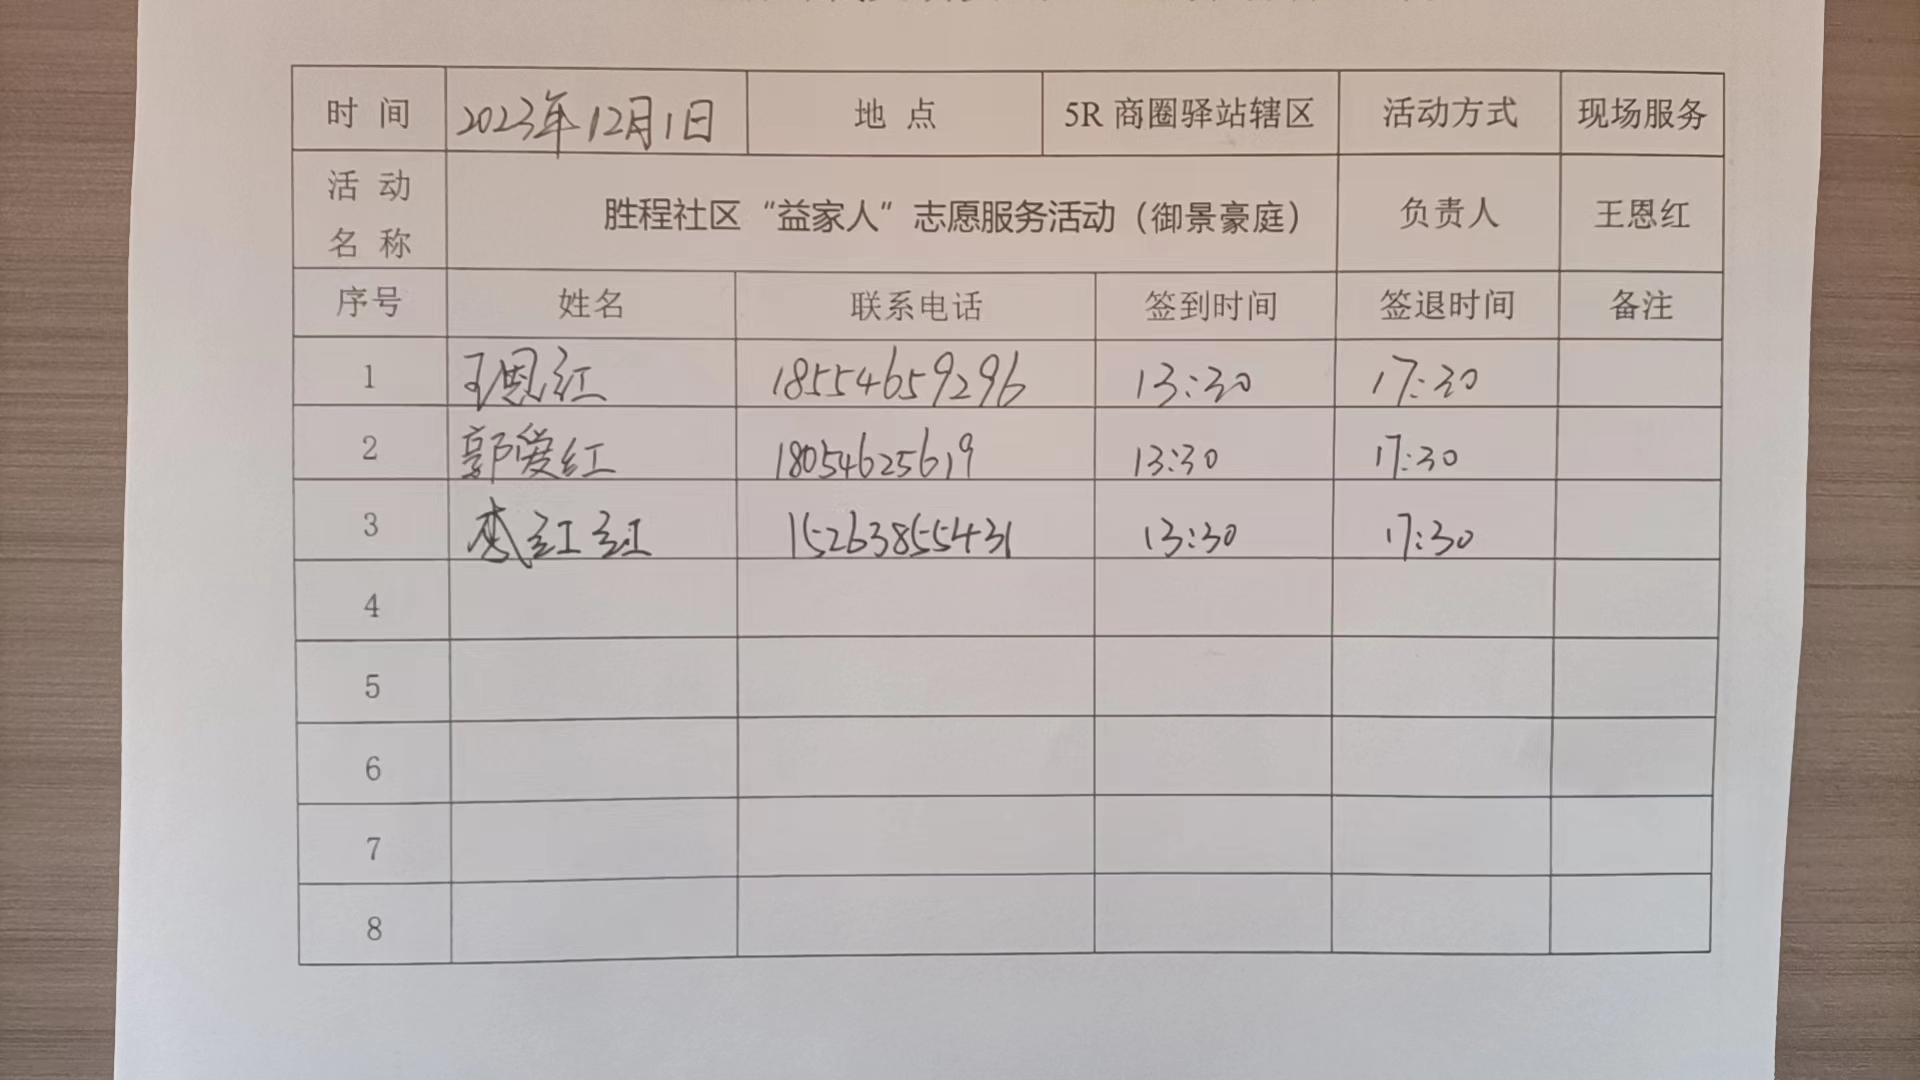 时 间 2023年12月1日 地 点 5R 商圈驿站辖区 活动方式 现场服务
活 动 名 称 胜程社区“益家人”志愿服务活动（御景豪庭） 负责人 王恩红
序号 姓名 联系电话 签到时间 签退时间 备注
1 王恩红 18554659296 13:30 17:30
2 郭爱红 18054625619 13:30 17:30
3 红红 15263855431 13:30 17:30
4
5
6
7
8